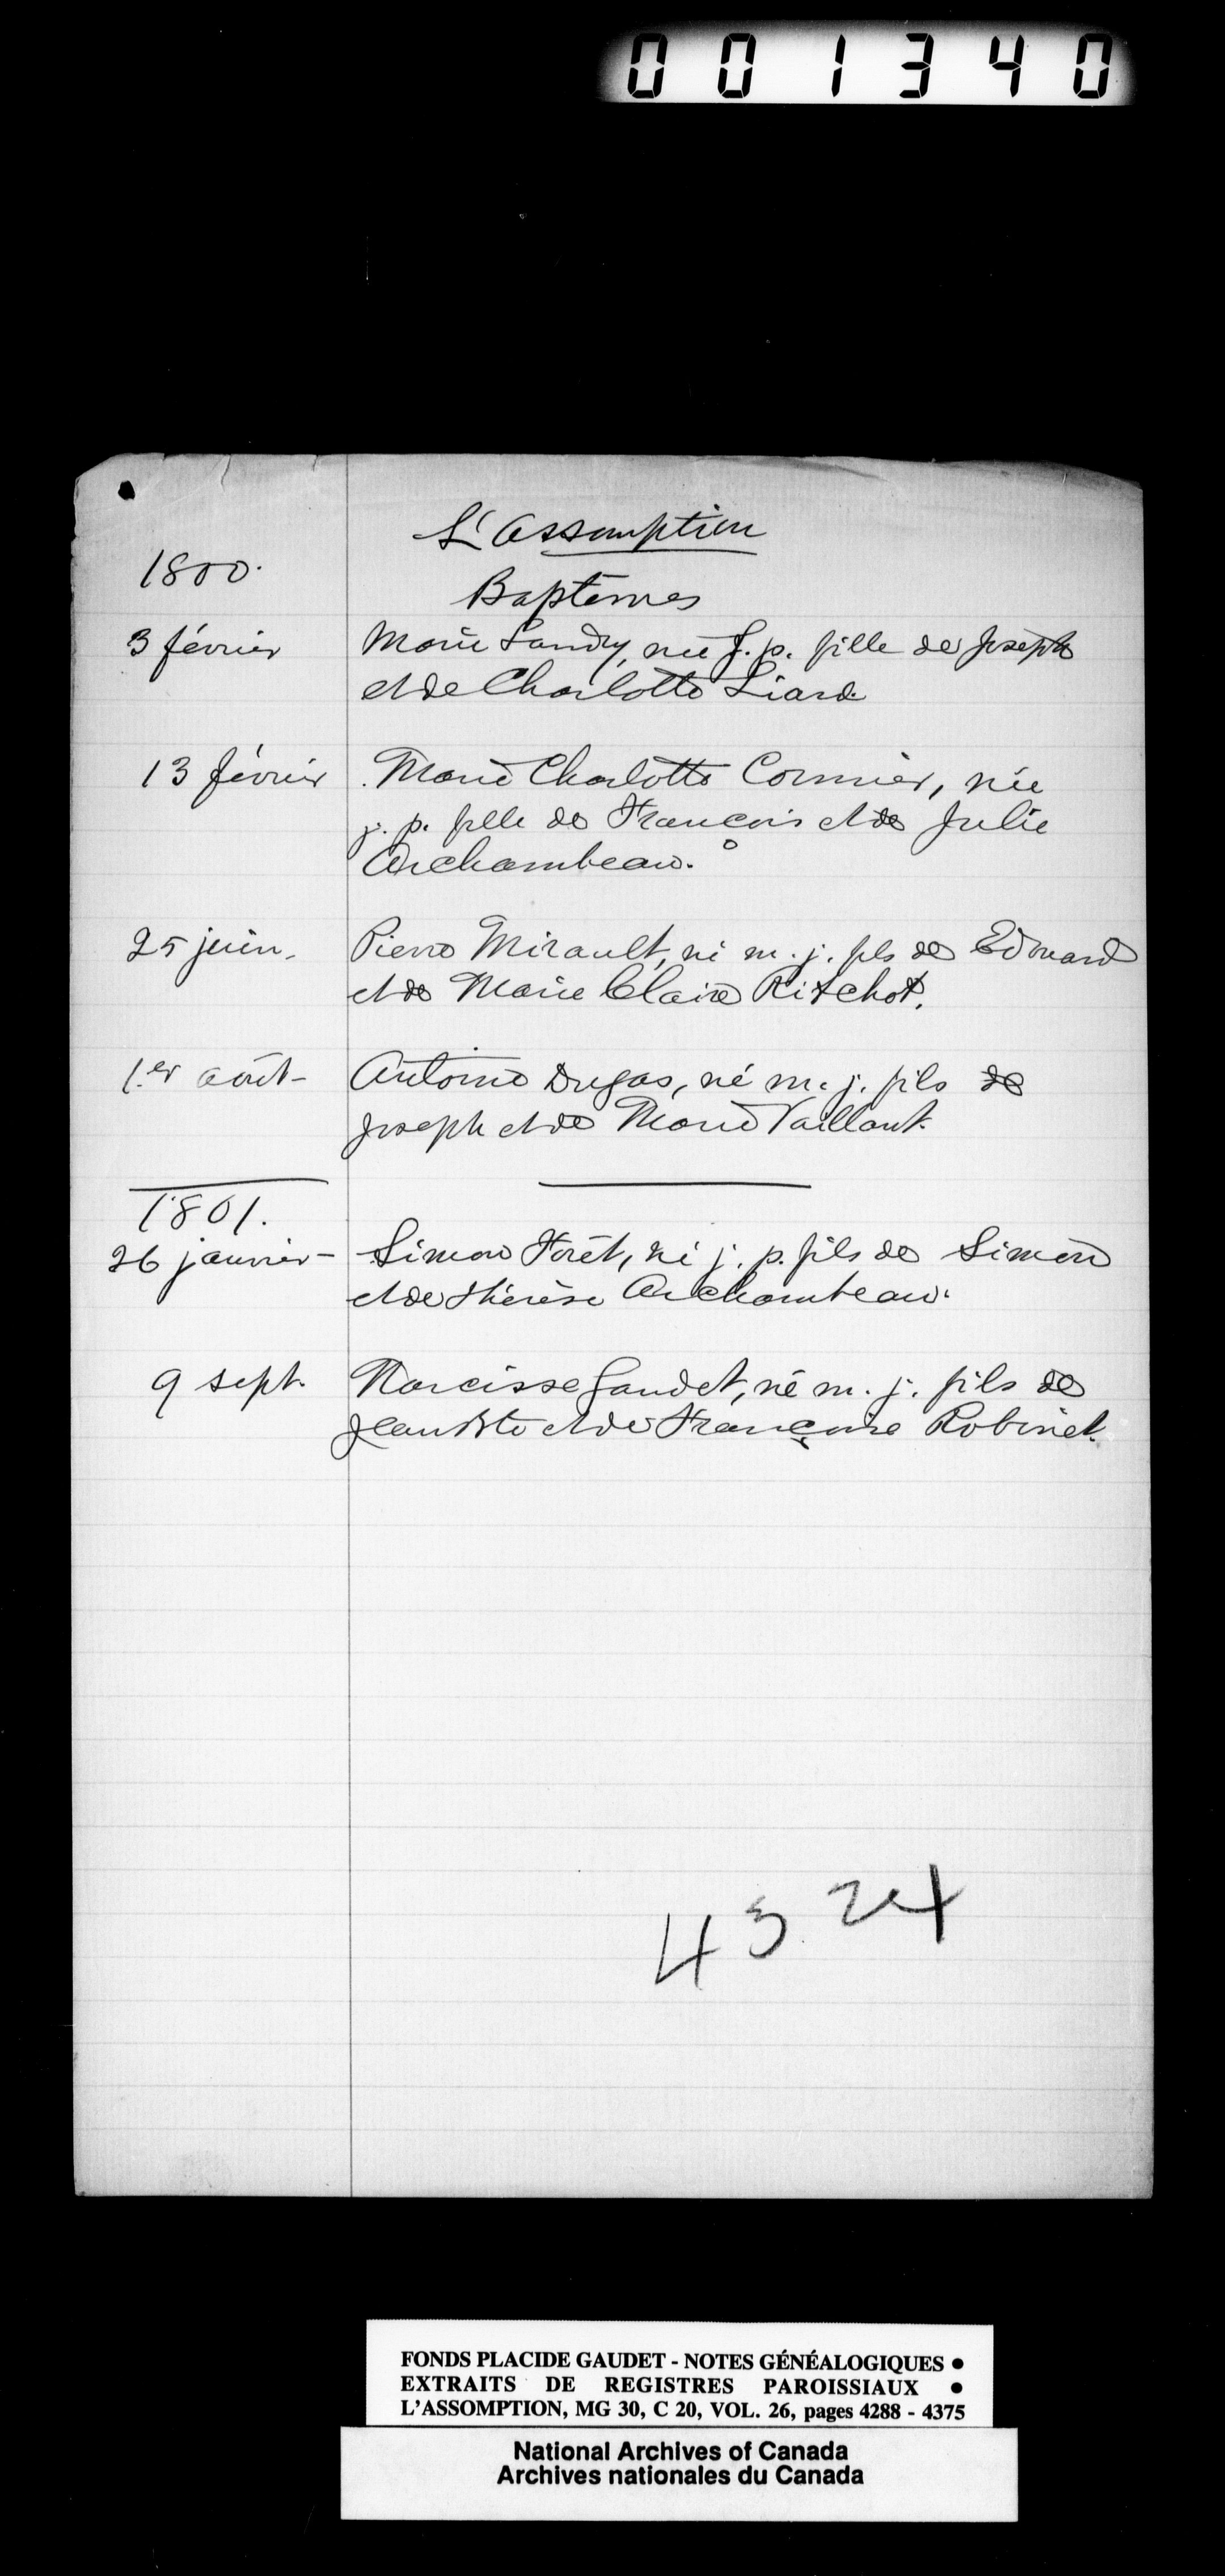 001340
L'Assomption
1800.
Baptêmes
3 février Marie Landry, née j. p. fille de Joseph
et de Charlotte Liard.
13 février Marie Charlotte Cormier, née
j. p. fille de François et de Julie
Archambeau.
25 juin. Pierre Mirault, né m. j. fils de Edouard
et de Marie Claire Ritchot.
1.er août - Antoine Dugas, né m. j. fils de
Joseph et de Marie Vaillant.
1801.
26 janvier - Simon Forêt, né j. p. fils de Simon
et de Thérèse Archambeau.
9 sept. Narcisse Gaudet, né m. j. fils de
Jean Bte et de Françoise Robinet.
4324
FONDS PLACIDE GAUDET - NOTES GÉNÉALOGIQUES •
EXTRAITS DE REGISTRES PAROISSIAUX •
L'ASSOMPTION, MG 30, C 20, VOL. 26, pages 4288 - 4375
National Archives of Canada
Archives nationales du Canada